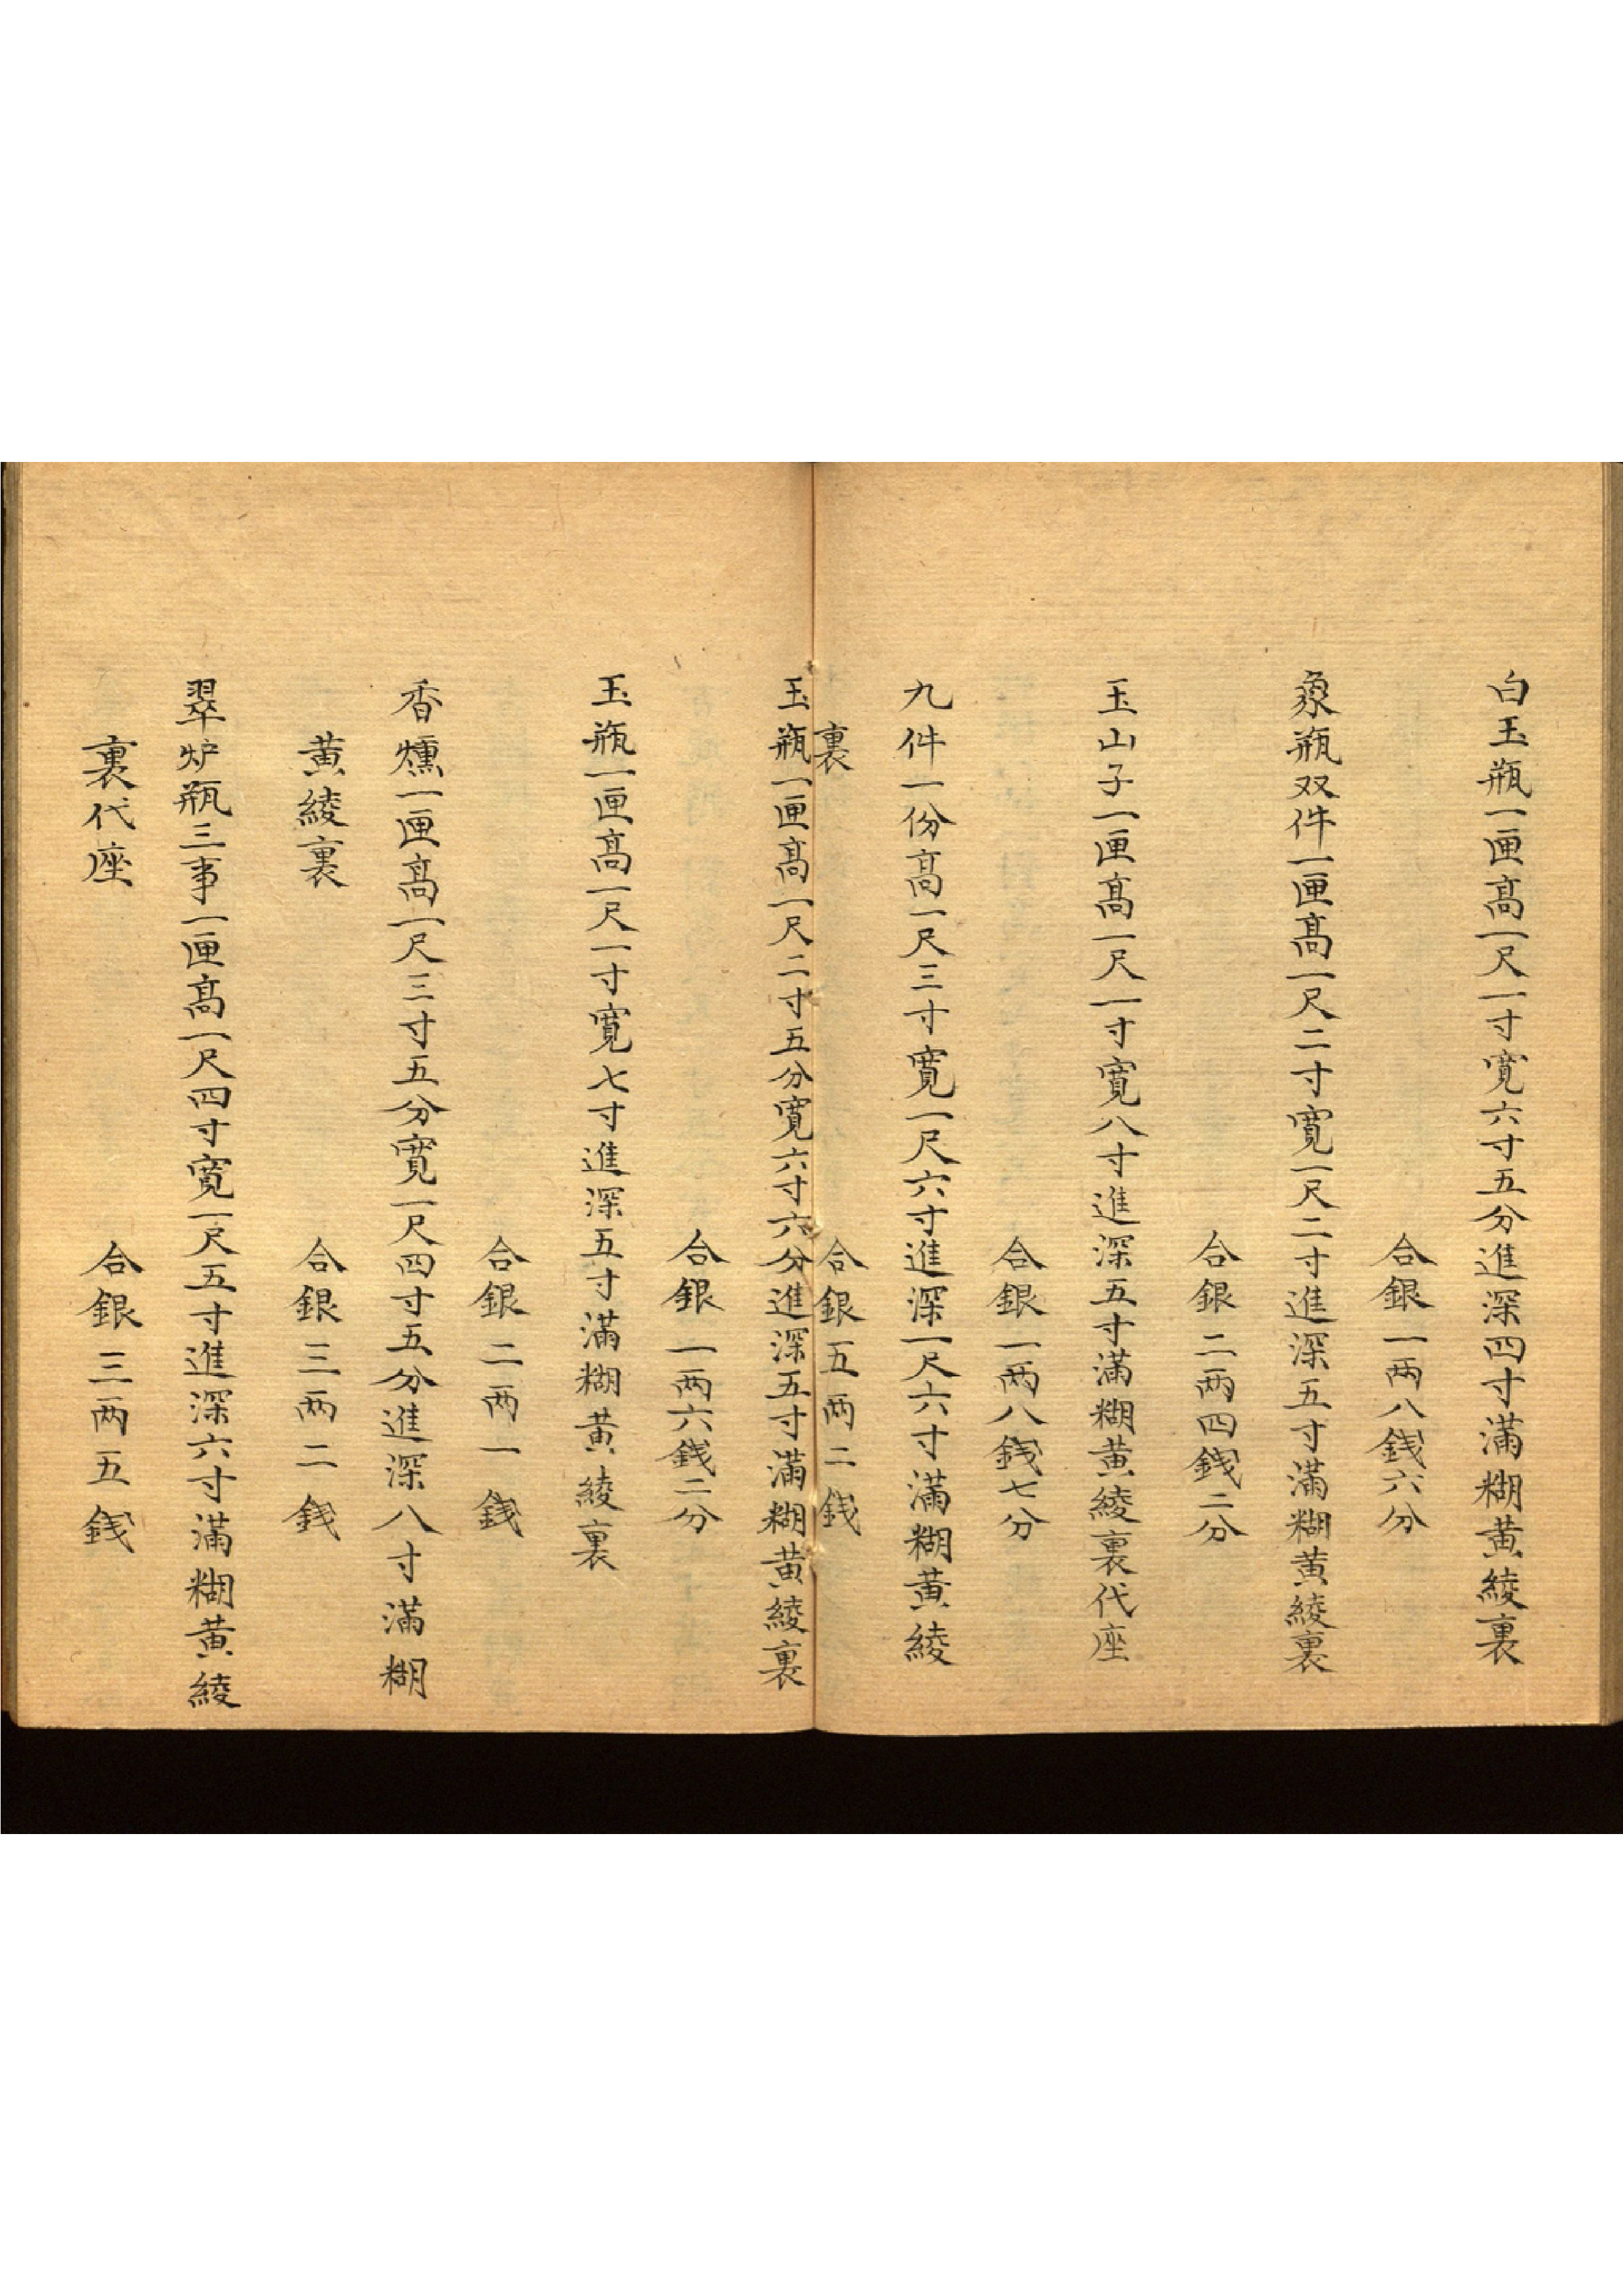 白玉瓶一匣高一尺一寸寬六寸五分進深四寸滿糊黃綾裏
合銀一两八錢六分
象瓶双件一匣高一尺二寸寬一尺二寸進深五寸滿糊黃綾裏
合銀二两四錢二分
玉山子一匣高一尺一寸寬八寸進深五寸滿糊黃綾裏代座
合銀一两八錢七分
九件一份高一尺三寸寬一尺六寸進深一尺六寸滿糊黃綾
裏 合銀五两二錢
玉瓶一匣高一尺二寸五分寬六寸六分進深五寸滿糊黃綾裏
合銀一两六錢二分
玉瓶一匣高一尺一寸寬七寸進深五寸滿糊黃綾裏
合銀二两一錢
香爐一匣高一尺三寸五分寬一尺四寸五分進深八寸滿糊
黃綾裏 合銀三两二錢
翠炉瓶三事一匣高一尺四寸寬一尺五寸進深六寸滿糊黃綾
裏代座 合銀三两五錢